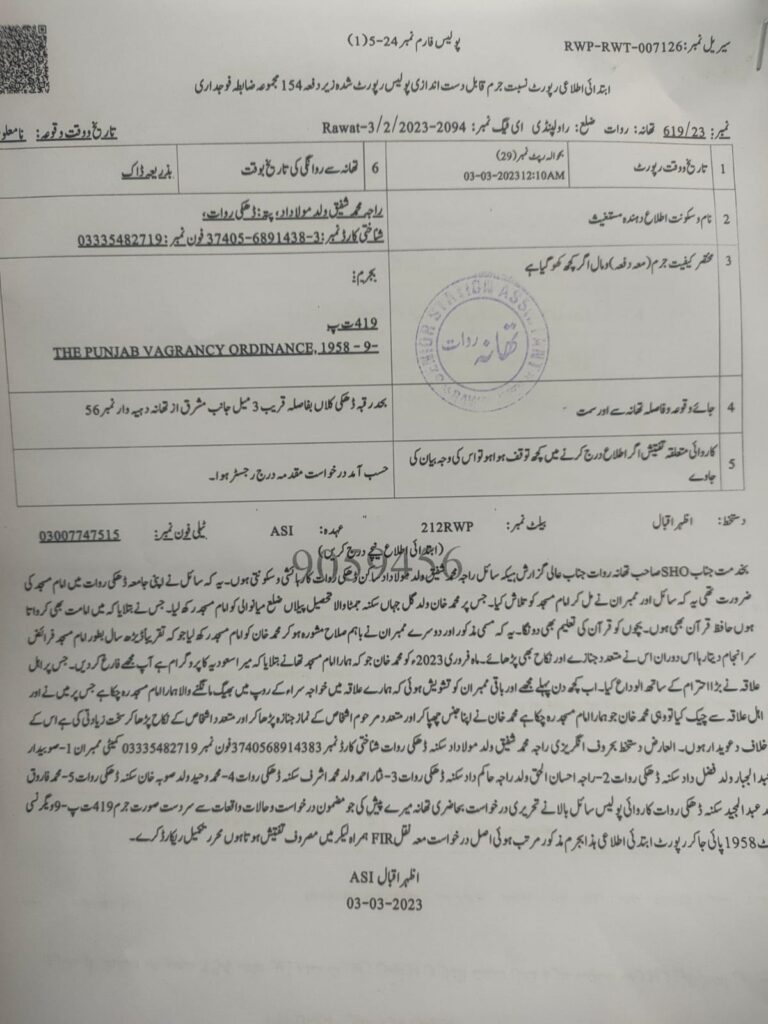 سیریل نمبر: RWP-RWT-007126
پولیس فارم نمبر 24-5(1)
ابتدائی اطلاعی رپورٹ نسبت جرم قابل دست اندازی پولیس رپورٹ شدہ زیر دفعہ 154 مجموعہ ضابطہ فوجداری
نمبر: 619/23 تھانہ: روات ضلع: راولپنڈی ای ٹیگ نمبر: Rawat-3/2/2023-2094 تاریخ و وقت وقوعہ:
1 تاریخ و وقت رپورٹ بحوالہ رپٹ نمبر (29)
03-03-2023 12:10AM
6 تھانہ سے روانگی کی تاریخ بوقت بذریعہ ڈاک
2 نام و سکونت اطلاع دہندہ مستغیث راجہ محمد شفیق ولد مولا داد، پتہ: ڈھکی روات،
شناختی کارڈ نمبر: 37405-6891438-3 فون نمبر: 03335482719
3 مختصر کیفیت جرم (معہ دفعہ) و مال اگر کچھ کھو گیا ہے بجرم:
419 ت پ
THE PUNJAB VAGRANCY ORDINANCE, 1958 - 9-
SENIOR STATION ASSISTANT
تھانہ روات
4 جائے وقوعہ و فاصلہ تھانہ سے اور سمت بحد رقبہ ڈھکی کلاں بفاصلہ قریب 3 میل جانب مشرق از تھانہ دیہیہ وار نمبر 56
5 کاروائی متعلقہ تفتیش اگر اطلاع درج کرنے میں کچھ توقف ہوا ہو تو اس کی وجہ بیان کی
جاوے حسب آمد درخواست مقدمہ درج رجسٹر ہوا۔
دستخط: اظہر اقبال بیلٹ نمبر: 212RWP عہدہ: ASI ٹیلی فون نمبر: 03007747515
(ابتدائی اطلاع نیچے درج کریں)
9059456
بخدمت جناب SHO صاحب تھانہ روات جناب عالی گزارش ہیکہ سائل راجہ محمد شفیق ولد مولا داد ساکن ڈھکی روات کا رہائشی و سکونتی ہوں۔ یہ کہ سائل نے اپنی جامعہ ڈھکی روات میں امام مسجد کی
ضرورت تھی یہ کہ سائل اور ممبران نے مل کر امام مسجد کو تلاش کیا۔ جس پر محمد خان ولد گل جہاں سکنہ جمنا والا تحصیل پیپلاں ضلع میانوالی کو امام مسجد رکھ لیا۔ جس نے بتلایا کہ میں امامت بھی کرواتا
ہوں حافظ قرآن بھی ہوں۔ بچوں کو قرآن کی تعلیم بھی دونگا۔ یہ کہ مسمی مذکور اور دوسرے ممبران نے باہم صلاح مشورہ ہو کر محمد خان کو امام مسجد رکھ لیا جو کہ تقریباً ڈیڑھ سال بطور امام مسجد فرائض
سر انجام دیتا رہا اس دوران اس نے متعدد جنازے اور نکاح بھی پڑھائے۔ ماہ فروری 2023ء کو محمد خان جو کہ ہمارا امام مسجد تھا نے بتلایا کہ میرا سعودیہ کا پروگرام ہے آپ مجھے فارغ کر دیں۔ جس پر اہل
علاقہ نے بڑا احترام کے ساتھ الوداع کیا۔ اب کچھ دن پہلے مجھے اور باقی ممبران کو تشویش ہوئی کہ ہمارے علاقہ میں خواجہ سراء کے روپ میں بھیگ مانگنے والا ہمارا امام مسجد رہ چکا ہے جس پر میں نے اور
اہل علاقہ سے چیک کیا تو وہی محمد خان جو ہمارا امام مسجد رہ چکا ہے محمد خان نے اپنا جنس چھپا کر اور متعدد مرحوم اشخاص کے نماز جنازہ پڑھا کر اور متعدد اشخاص کے نکاح پڑھا کر سخت زیادتی کی ہے اس کے
خلاف دعویدار ہوں۔ العارض دستخط بحروف انگریزی راجہ محمد شفیق ولد مولا داد سکنہ ڈھکی روات شناختی کارڈ نمبر 3740568914383 فون نمبر 03335482719 کمیٹی ممبران 1-صوبیدار
عبد الجبار ولد فضل داد سکنہ ڈھکی روات 2-راجہ احسان الحق ولد راجہ حاکم داد سکنہ ڈھکی روات 3-نثار احمد ولد محمد اشرف سکنہ ڈھکی روات 4-محمد وحید ولد صوبہ خان سکنہ ڈھکی روات 5-محمد فاروق
عبد المجید سکنہ ڈھکی روات کاروائی پولیس سائل بالا نے تحریری درخواست بحاضری تھانہ میرے پیش کی جو مضمون درخواست و حالات واقعات سے سردست صورت جرم 419 ت پ-9 ویگرنسی
1958 پائی جا کر رپورٹ ابتدائی اطلاعی ہذا بجرم مذکور مرتب ہوئی اصل درخواست معہ نقل FIR ہمراہ لیکر میں مصروف تفتیش ہوتا ہوں محرر تکمیل ریکارڈ کرے۔
اظہر اقبال ASI
03-03-2023